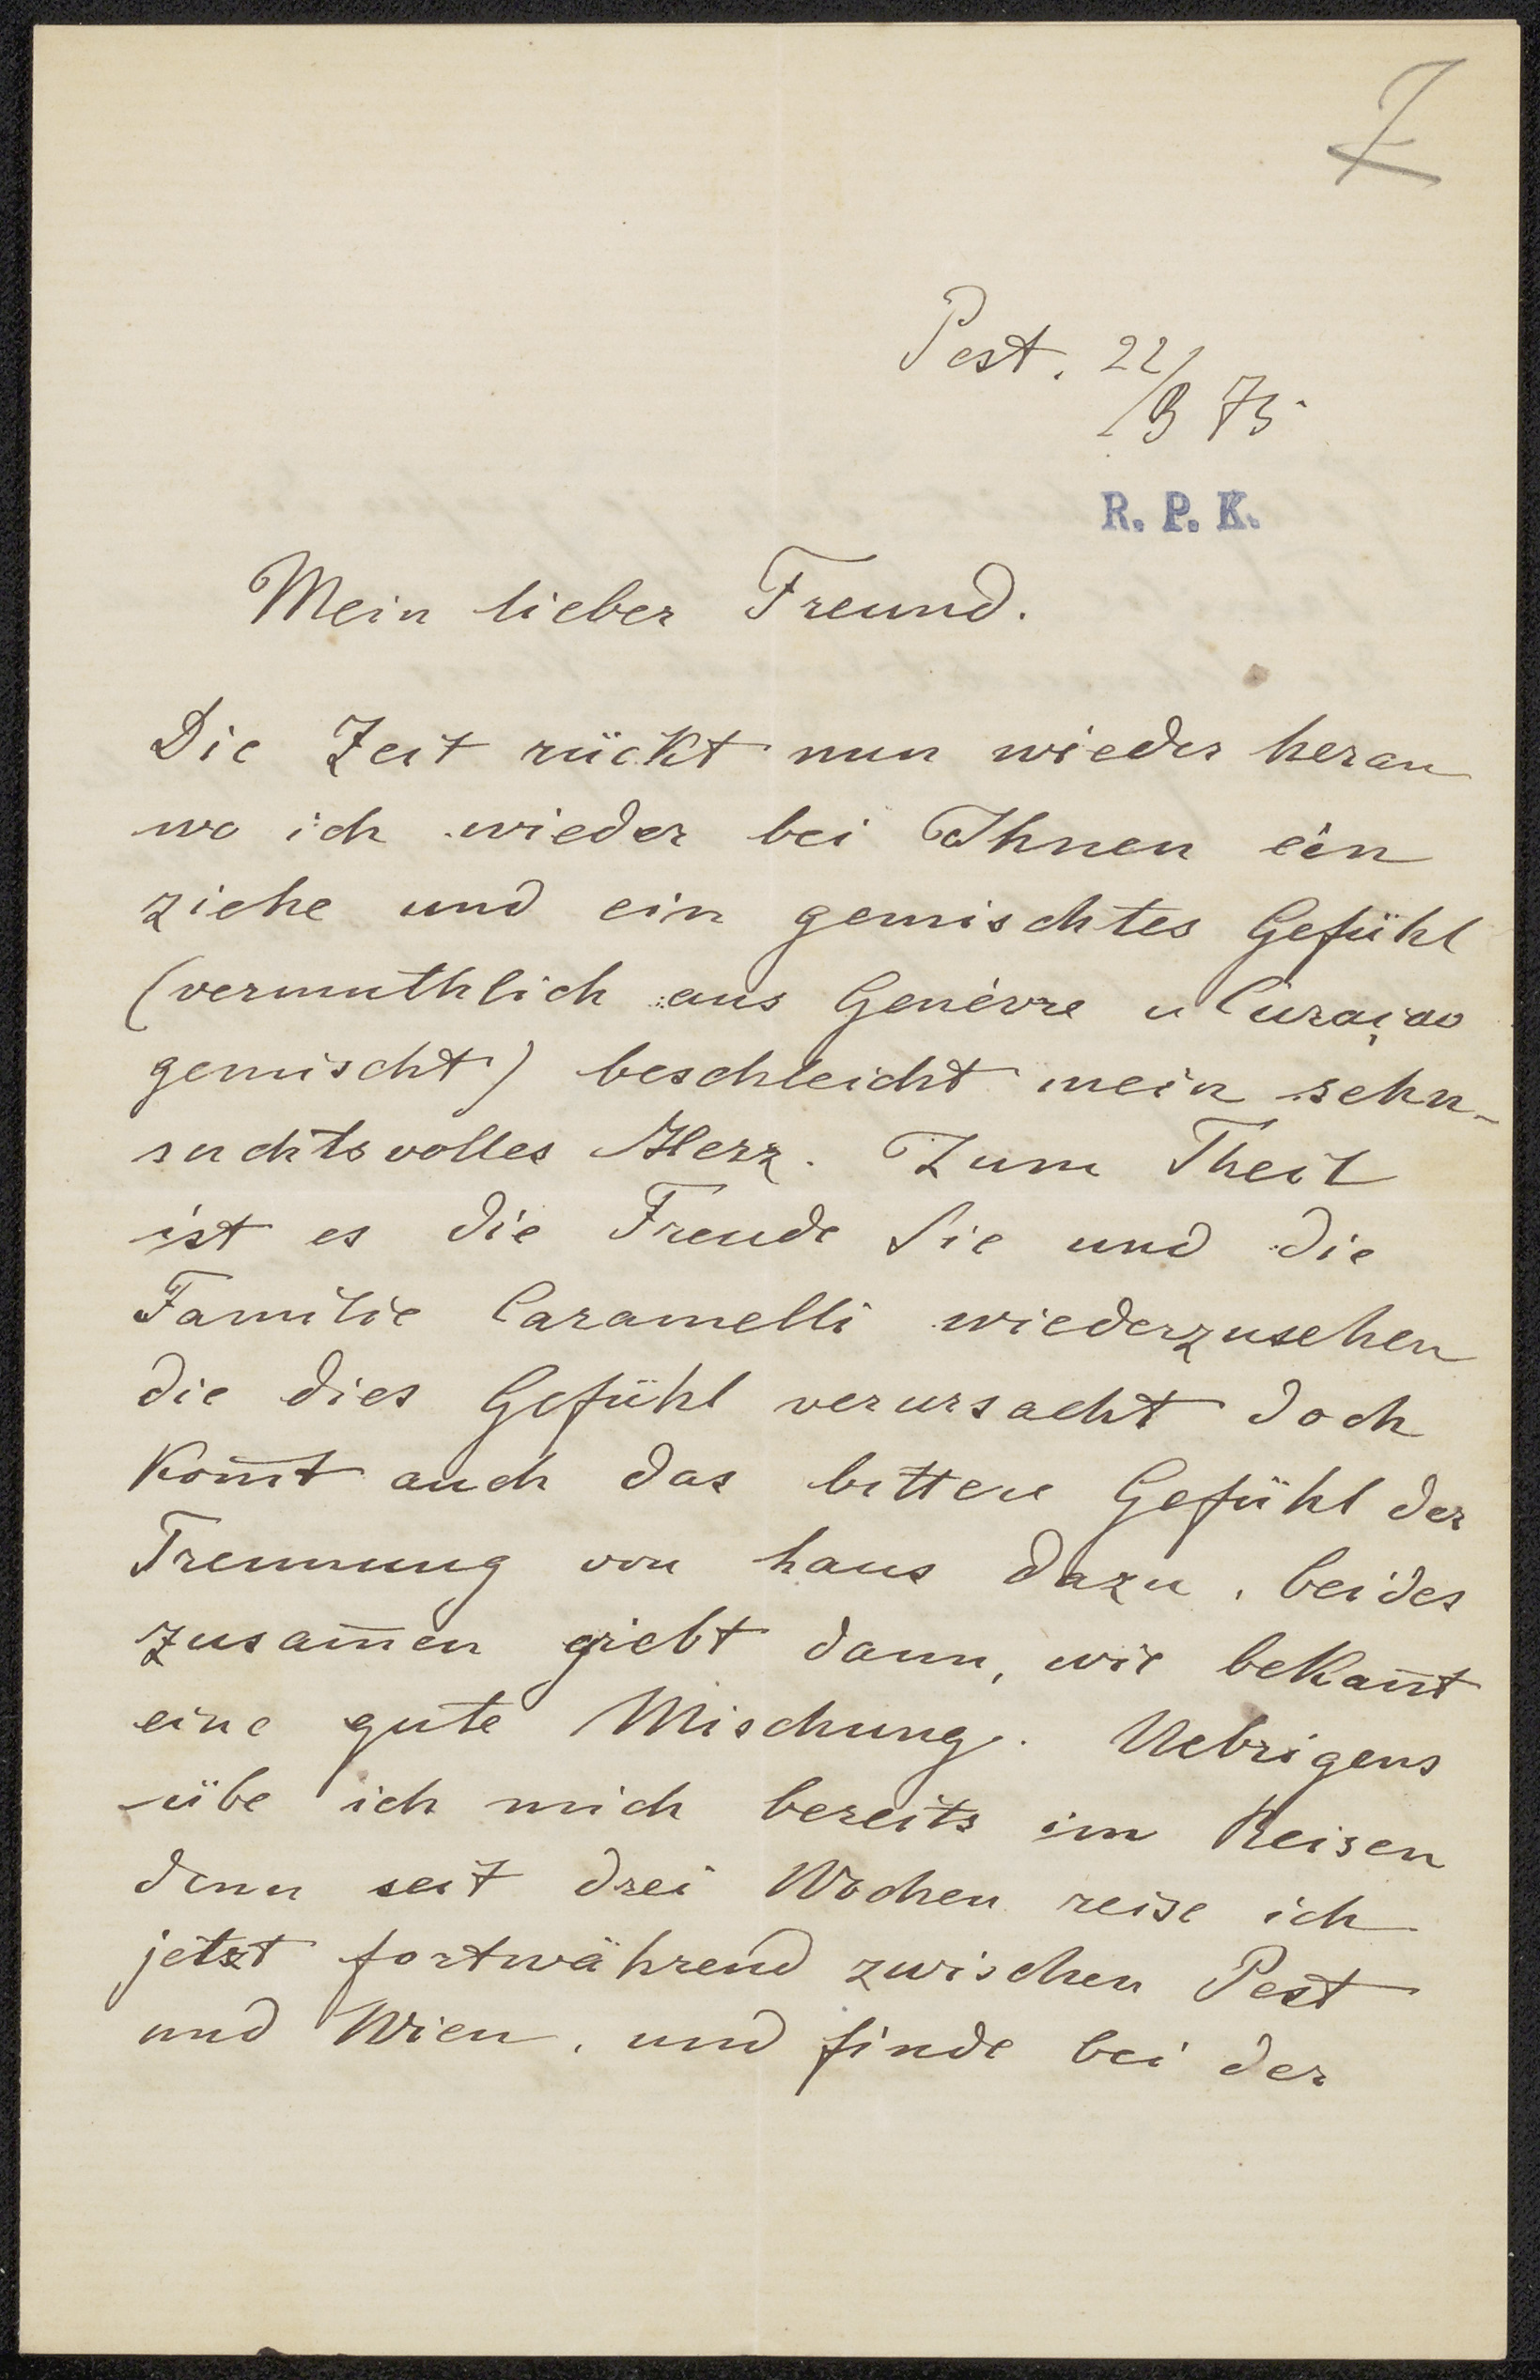 Pest. 22/
9 75
R. P. K.
Mein lieber Freund.
Die Zeit rückt nun wieder heran
wo ich wieder bei Ihnen ein
ziehe und ein gemischtes Gefühl
(vermuthlich aus Genèvre u Curaçao
gemischt) beschleicht mein sehn-
suchtsvolles Herz. Zum Theil
ist es die Freude Sie und die
Familie Caramelli wiederzusehen
die dies Gefühl verursacht doch
kom̄t auch das bittere Gefühl der
Trennung von haus dazu, beides
zusam̄en giebt dann, wie bekan̄t
eine gute Mischung. Uebrigens
übe ich mich bereits im Reisen
denn seit drei Wochen reise ich
jetzt fortwährend zwischen Pest
und Wien, und finde bei der